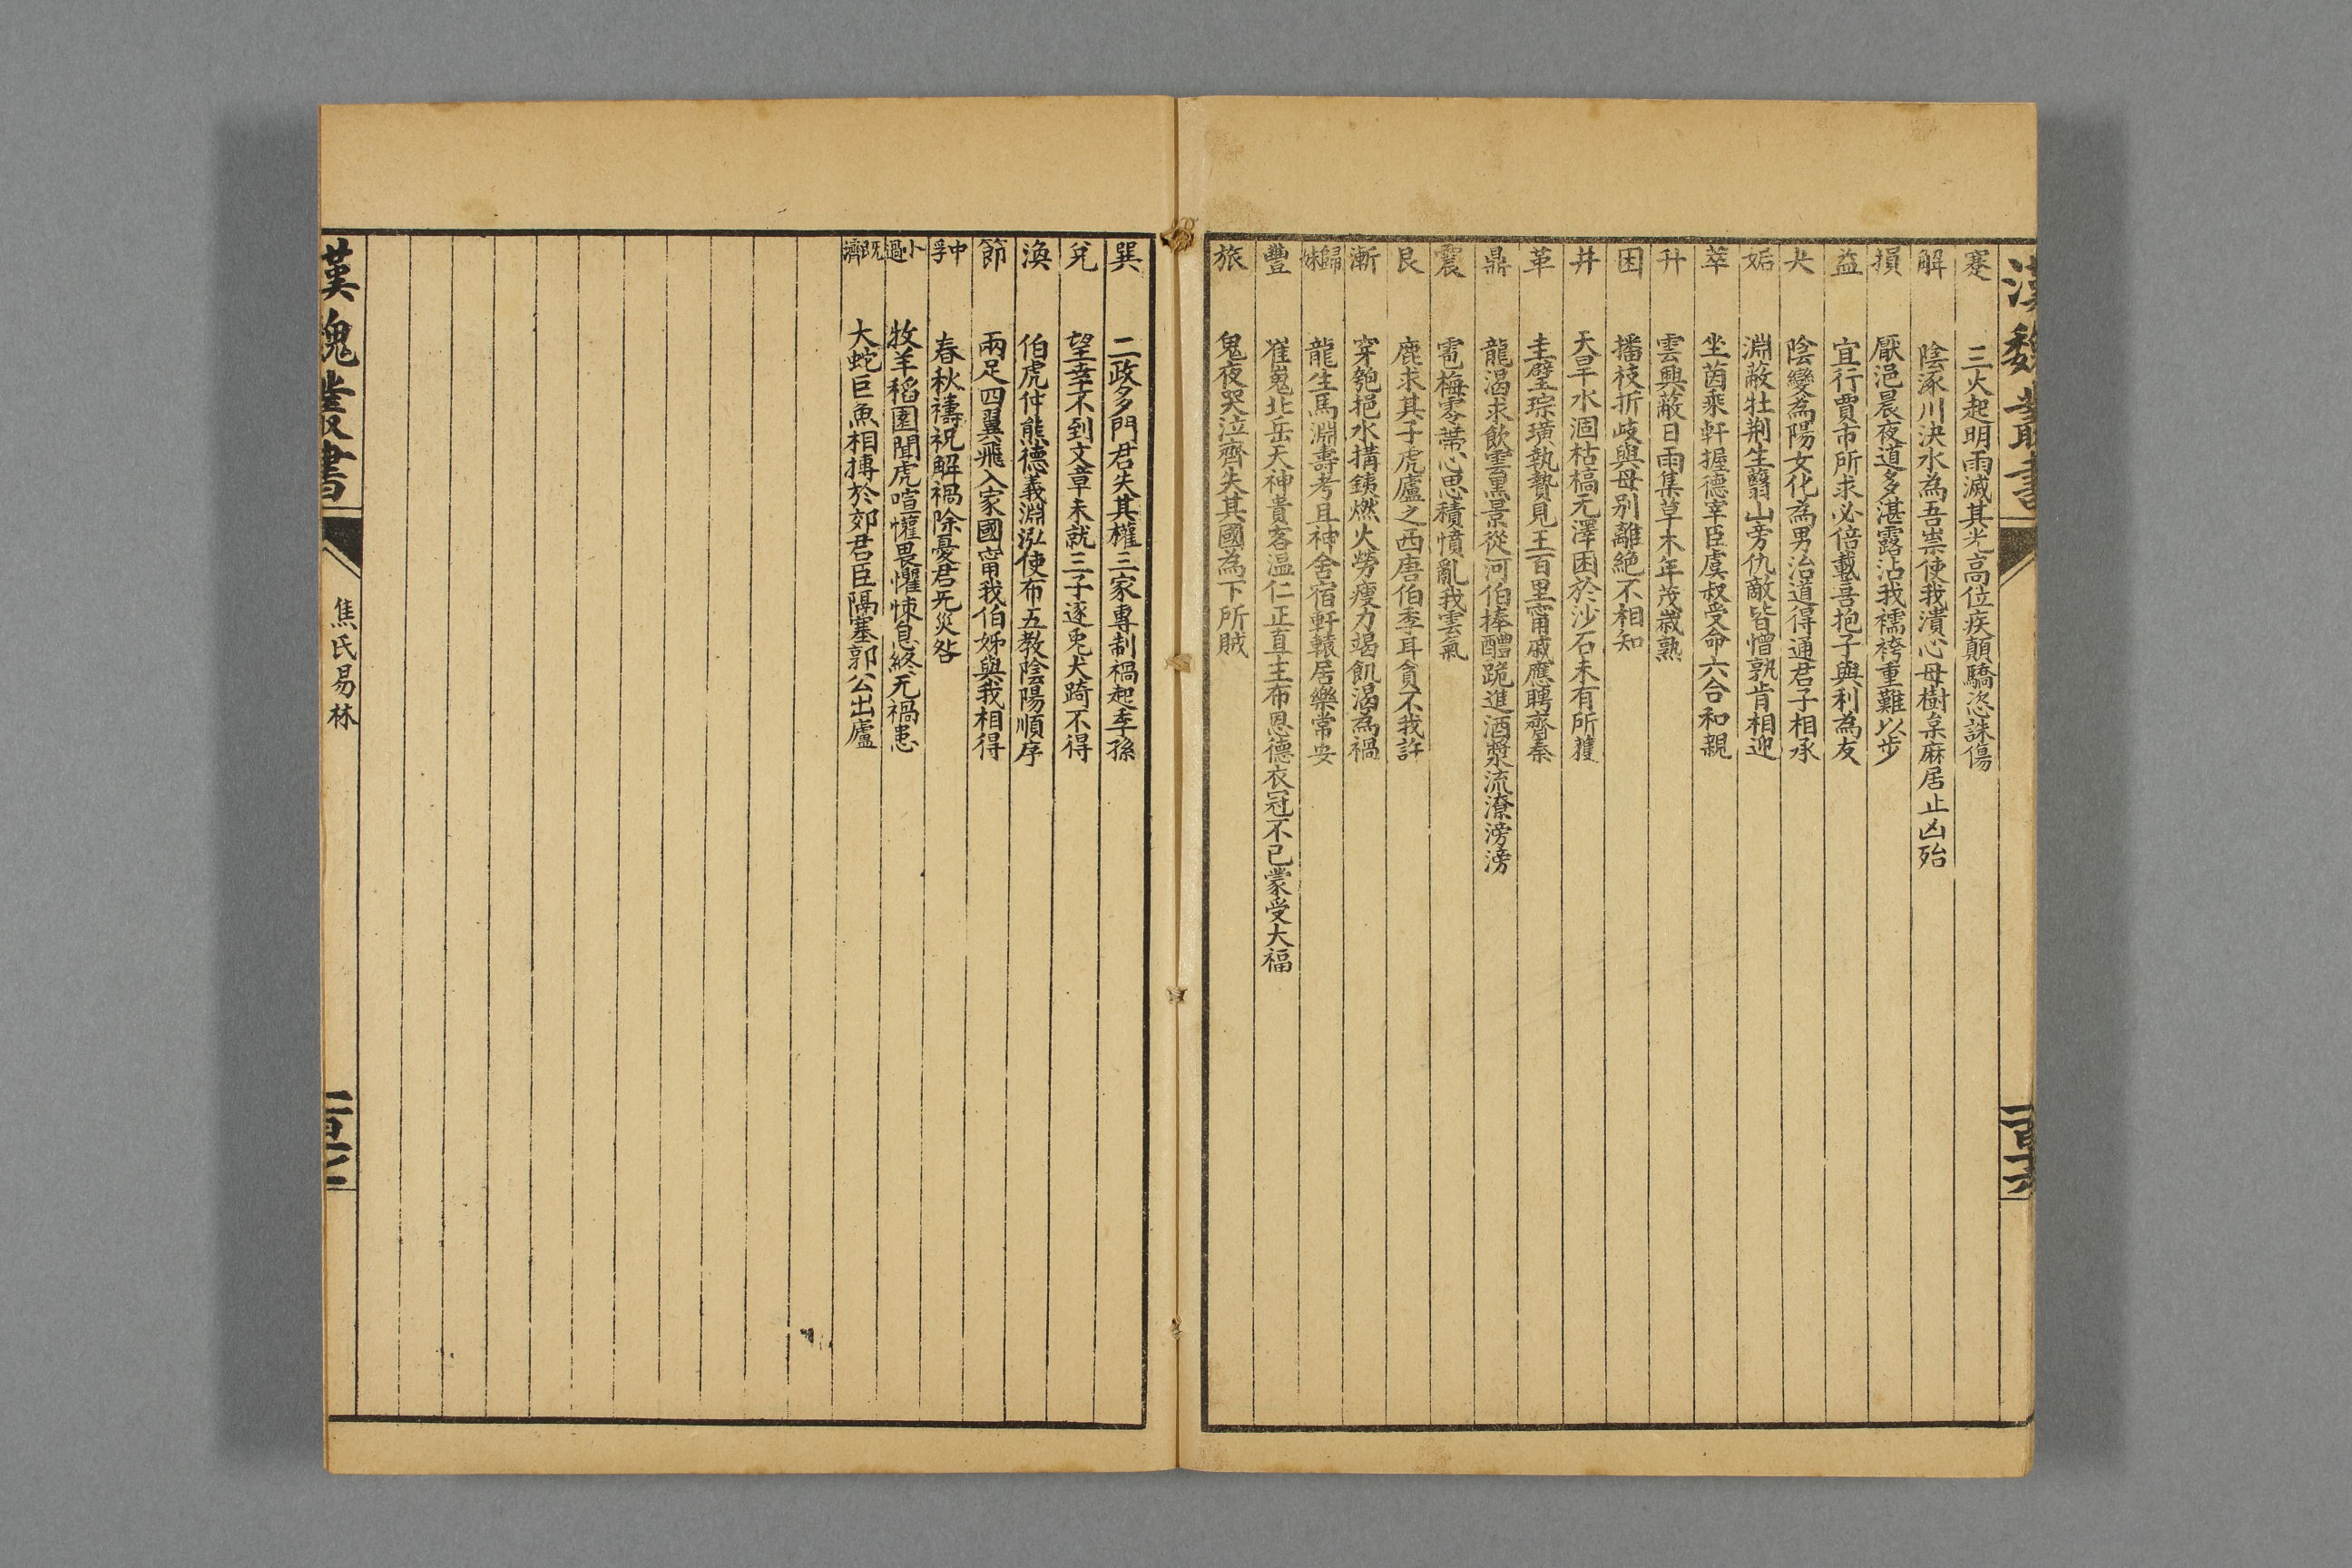 漢魏叢書
蹇 三火起明雨滅其光高位疾顛驕恣誅傷
解 陰涿川決水為吾祟使我潰心母樹枲麻居止凶殆
損 厭浥晨夜道多湛露沾我襦袴重難以步
益 宜行賈市所求必倍載喜抱子與利為友
夬 陰變為陽女化為男治道得通君子相承
姤 淵蔽牡荆生翳山旁仇敵皆憎孰肯相迎
萃 坐茵乘軒握德宰臣虞叔受命六合和親
升 雲興蔽日雨集草木年茂歲熟
困 播枝折岐與母别離絶不相知
井 天旱水涸枯槁无澤困於沙石未有所獲
革 圭璧琮璜執贄見王百里甯戚應聘齊秦
鼎 龍渴求飲雲黑景從河伯捧醴跪進酒漿流潦滂滂
震 雹梅零蔕心思積憤亂我雲氣
艮 鹿求其子虎廬之西唐伯季耳貪不我許
漸 穿匏挹水搆銕燃火勞瘦力竭飢渴為禍
歸妹 龍生馬淵壽考且神舍宿軒轅居樂常安
豐 崔嵬北岳天神貴客温仁正直主布恩德衣冠不已蒙受大福
旅 鬼夜哭泣齊失其國為下所賊
巽 二政多門君失其權三家專制禍起季孫
兌 望幸不到文章未就三子逐兎犬踦不得
渙 伯虎仲熊德義淵泓使布五教陰陽順序
節 兩足四翼飛入家國甯我伯姊與我相得
中孚 春秋禱祝解禍除憂君无災咎
小過 牧羊稻園聞虎喧讙畏懼悚息終无禍患
既濟 大蛇巨魚相搏於郊君臣隔塞郭公出廬
漢魏叢書
焦氏易林